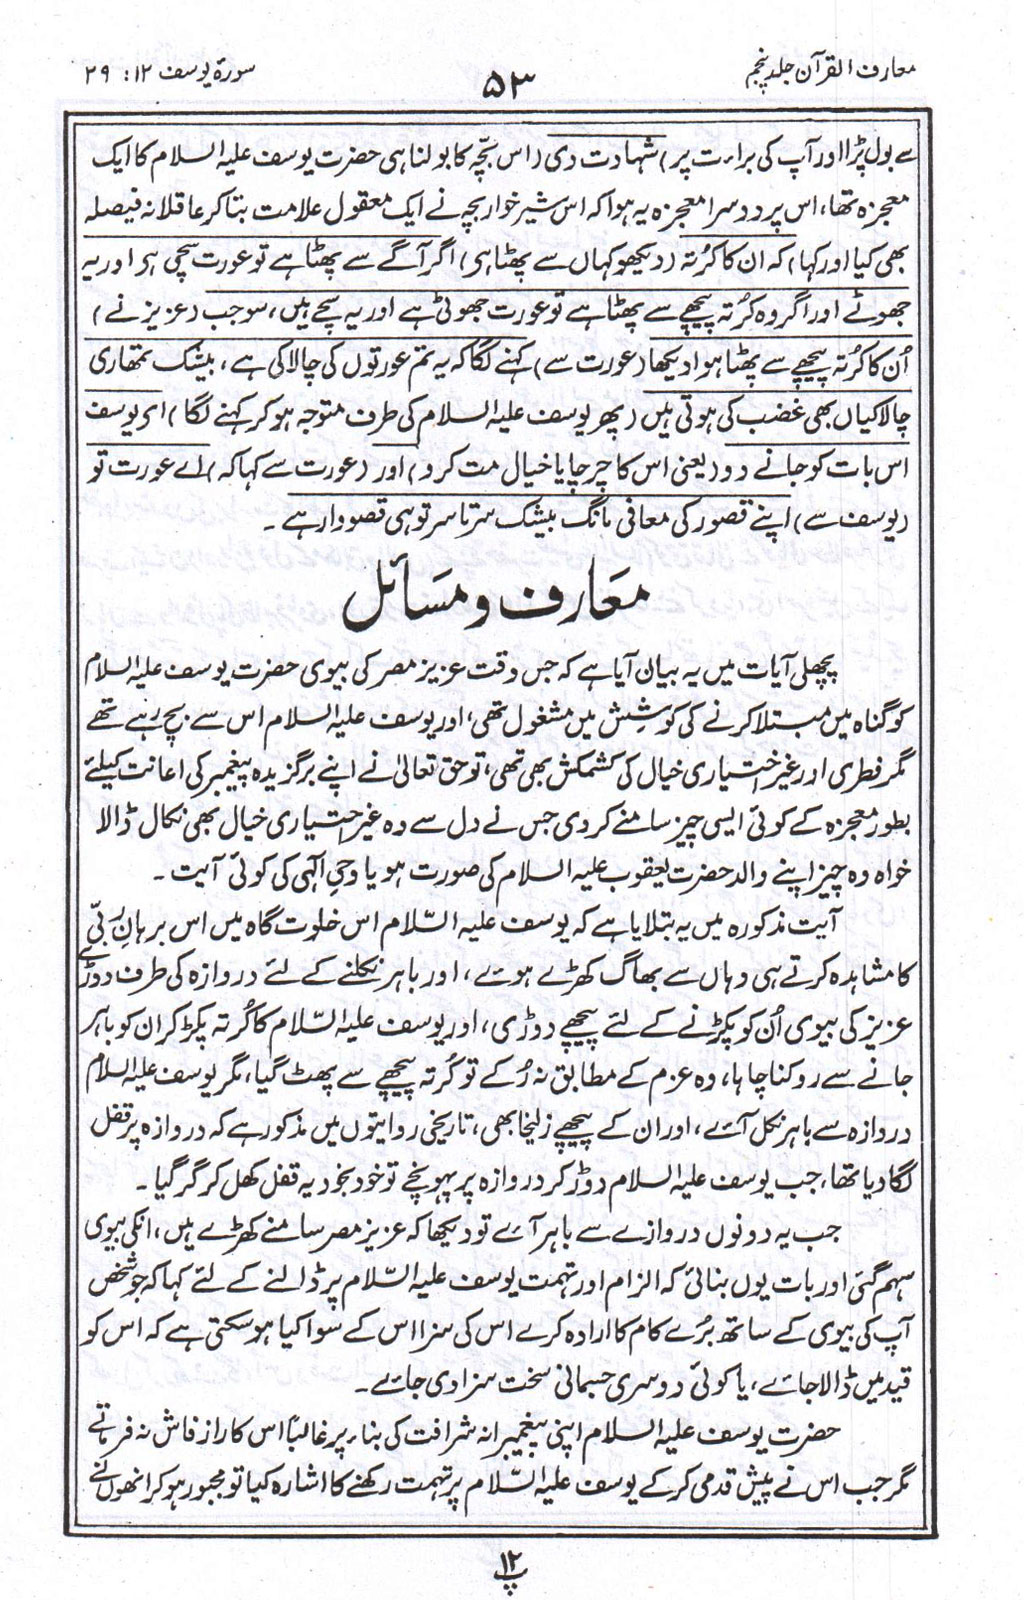 معارف القرآن جلد پنجم
۵۳
سورۃ یوسف ۱۲ : ۲۹
سے بول پڑا اور آپ کی براءت پر) شہادت دی (اس بچّہ کا بولنا ہی حضرت یوسف علیہ السلام کا ایک
معجزہ تھا، اس پر دوسرا معجزہ یہ ہوا کہ اس شیر خوار بچہ نے ایک معقول علامت بتا کر عاقلانہ فیصلہ
بھی کیا اور کہا) کہ ان کا کُرتہ (دیکھو کہاں سے پھٹا ہی) اگر آگے سے پھٹا ہے تو عورت سچی ہی اور یہ
جھوٹے اور اگر وہ کُرتہ پیچھے سے پھٹا ہے تو عورت جھوٹی ہے اور یہ سچے ہیں، سو جب (عزیز نے)
اُن کا کُرتہ پیچھے سے پھٹا ہوا دیکھا (عورت سے) کہنے لگا کہ یہ تم عورتوں کی چالاکی ہے، بیشک تمھاری
چالاکیاں بھی غضب کی ہوتی ہیں (پھر یوسف علیہ السلام کی طرف متوجہ ہو کر کہنے لگا) ای یوسف
اس بات کو جانے دو (یعنی اس کا چرچا یا خیال مت کرو) اور (عورت سے کہا کہ) اے عورت تو
(یوسف سے) اپنے قصور کی معافی مانگ بیشک سرتاسر تو ہی قصور وار ہے ۔
مَعَارف و مَسَائل
پچھلی آیات میں یہ بیان آیا ہے کہ جس وقت عزیز مصر کی بیوی حضرت یوسف علیہ السلام
کو گناہ میں مبتلا کرنے کی کوشِش میں مشغول تھی، اور یوسف علیہ السلام اس سے بچ رہے تھے
مگر فطری اور غیر اختیاری خیال کی کشمکش بھی تھی، تو حق تعالیٰ نے اپنے برگزیدہ پیغمبر کی اعانت کیلئے
بطور معجزہ کے کوئی ایسی چیز سامنے کر دی جس نے دل سے وہ غیر اختیاری خیال بھی نکال ڈالا
خواہ وہ چیز اپنے والد حضرت یعقوب علیہ السلام کی صورت ہو یا وحیِ آلٰہی کی کوئی آیت ۔
آیت مذکورہ میں یہ بتلایا ہے کہ یوسف علیہ السّلام اس خلوت گاہ میں اس برہانِ رَبّی
کا مشاہدہ کرتے ہی وہاں سے بھاگ کھڑے ہوئے، اور باہر نکلنے کے لئے دروازہ کی طرف دوڑے
عزیز کی بیوی اُن کو پکڑنے کے لئے پیچھے دوڑی، اور یوسف علیہ السّلام کا کُرتہ پکڑ کر ان کو باہر
جانے سے روکنا چاہا، وہ عزم کے مطابق نہ رُکے تو کُرتہ پیچھے سے پھٹ گیا، مگر یوسف علیہ السلام
دروازہ سے باہر نکل آئے، اور ان کے پیچھے زلیخا بھی، تاریخی روایتوں میں مذکور ہے کہ دروازہ پر قفل
لگا دیا تھا، جب یوسف علیہ السلام دوڑ کر دروازہ پر پہونچے تو خود بخود یہ قفل کھل کر گر گیا ۔
جب یہ دونوں دروازے سے باہر آئے تو دیکھا کہ عزیز مصر سامنے کھڑے ہیں، انکی بیوی
سہم گئی اور بات یوں بنائی کہ الزام اور تہمت یوسف علیہ السّلام پر ڈالنے کے لئے کہا کہ جو شخص
آپ کی بیوی کے ساتھ بُرے کام کا ارادہ کرے اس کی سزا اس کے سوا کیا ہو سکتی ہے کہ اس کو
قید میں ڈالا جائے، یا کوئی دوسری جسمانی سخت سزا دی جائے ۔
حضرت یوسف علیہ السلام اپنی پیغمبرانہ شرافت کی بناء پر غالباً اس کا راز فاش نہ فرماتے
مگر جب اس نے پیش قدمی کر کے یوسف علیہ السّلام پر تہمت رکھنے کا اشارہ کیا تو مجبور ہو کر انھوں نے
پ۱۲